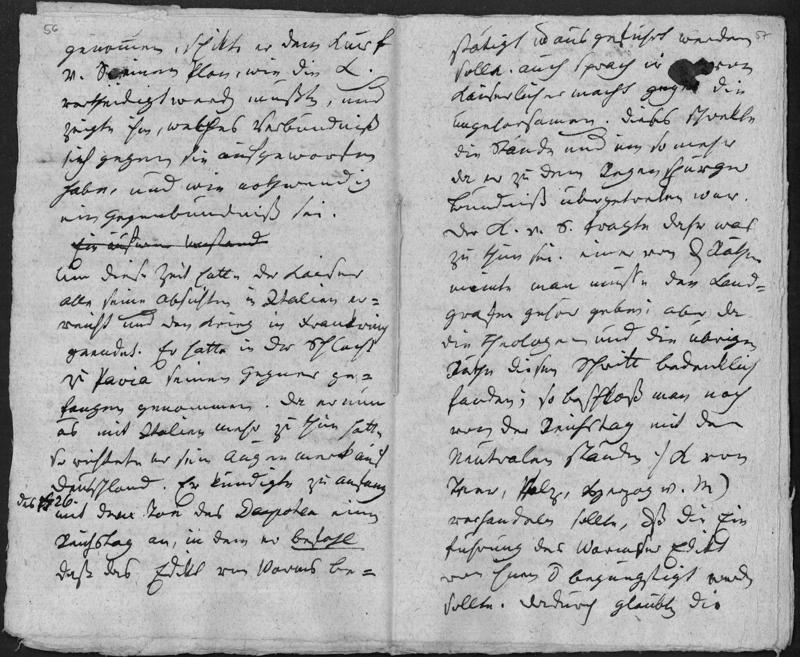 56
genommen, schikte er dem Kurf
v. S. einen Plan, wie die L.
vertheidigt werden müßte, und
zeigte ihm, welches Verbündniß
sich gegen sie aufgeworfen
habe, und wie nothwendig
ein Gegenbündniß sei.
Um diese Zeit hatte der Kaiser
alle seine Absichten in Italien er=
reicht und den Krieg in Frankreich
geendet. Er hatte in der Schlacht
zu Pavia seinen Gegner ge=
fangen genommen. Da er nun
es mit Italien mehr zu thun hatte
so richtete er sein Augenmerk auf
Deutschland. Er kündigte zu Anfang
des 26
mit dem Ton des Despoten einen
Reichstag an, in dem er befahl
daß das Edikt von Worms be=
57
stätigt u ausgeführt werden
sollte. auch sprach er von
Kaiserlicher macht gegen die
ungehorsamen. Dieß schrekte
die Stände und um so mehr
da er zu dem Regensburger
Bündniß übergetreten war.
Der K. v. S. fragte daher was
zu thun sei. einer von Räthen
meinte man müsse dem Land=
grafen gehör geben; aber da
die Theologen und die übrigen
Räthe diesen Schritt bedenklich
fanden; so beschloß man noch
vor dem Reichstag mit den
Neutralen ständen / K von
Trier, Pfalz, Herzog v. M)
verhandeln sollte, daß die Ein
führung des Wormser Edikts
von ihnen begünstigt werden
sollte. dadurch glaubten die